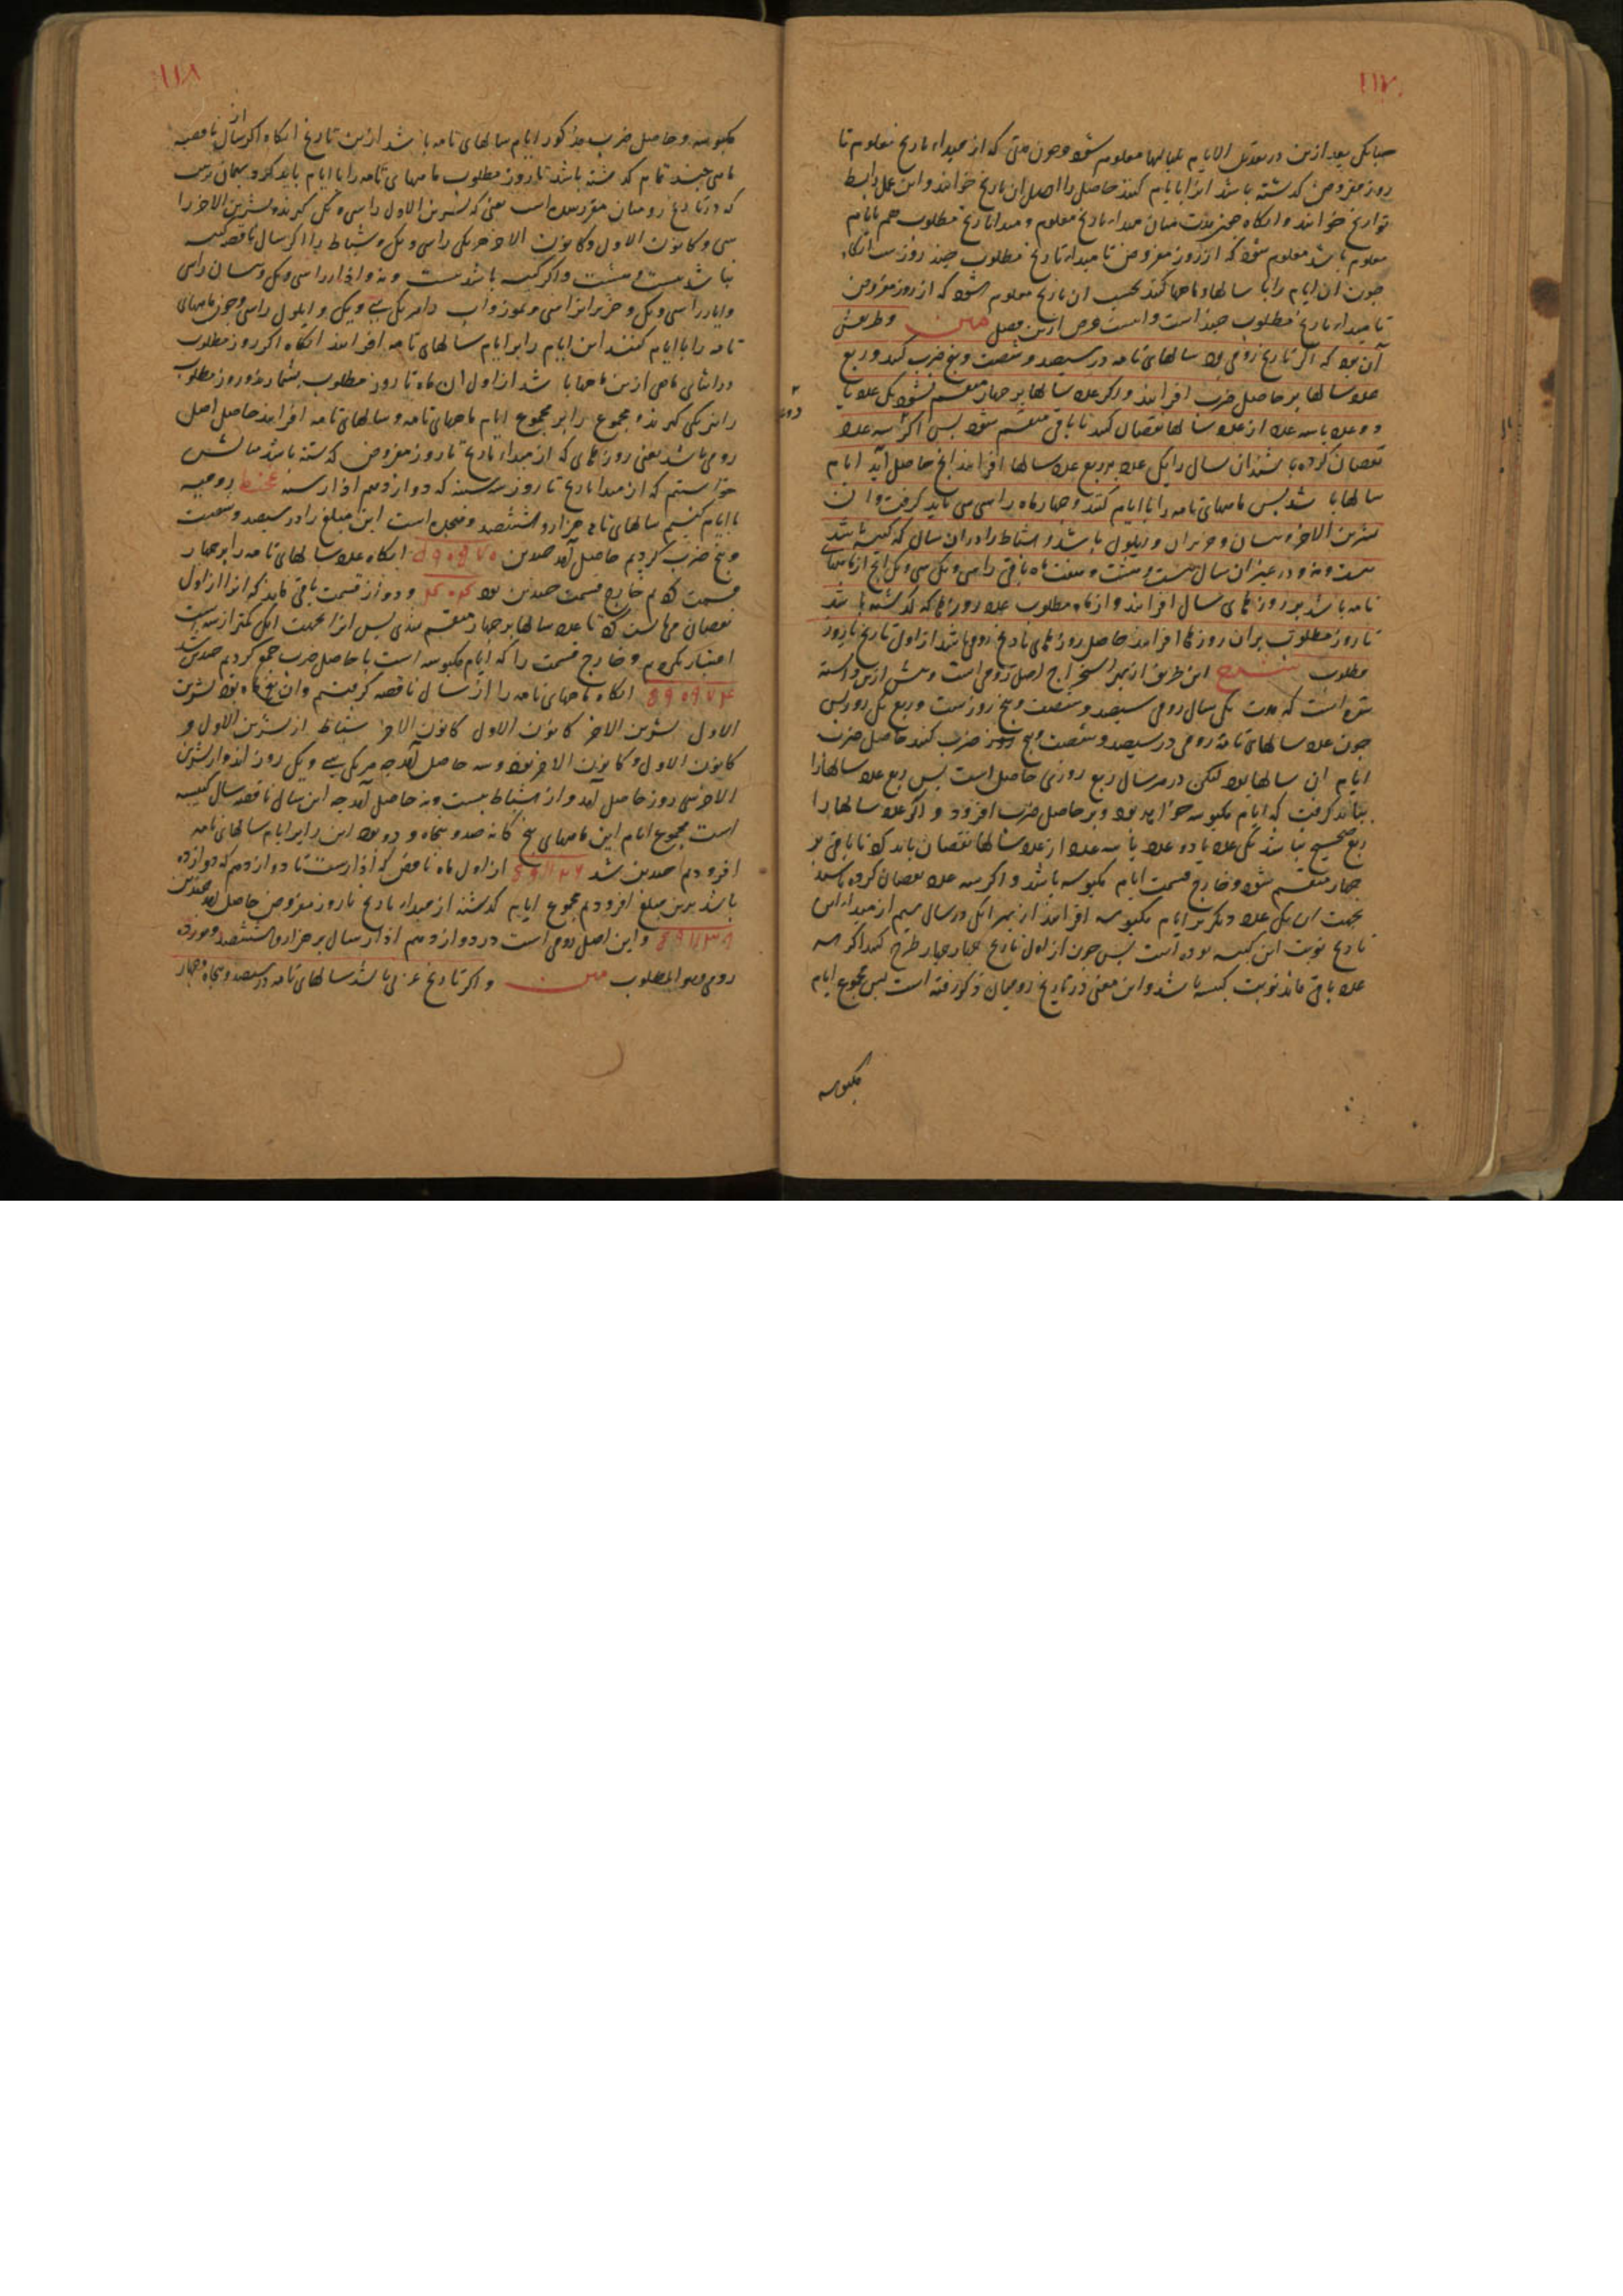 ۱۱۷
چنانکه بعد ازین در تعدیل الایام بلیالیها معلوم شود و چون مدتی که از مبداء تاریخ معلوم تا
روز مفروض گذشته باشد انرا بایام کنند حاصل را اصل ان تاریخ خوانند و این عمل را بسط
تواریخ خوانند و انکاه چون مدت میان مبداء تاریخ معلوم و مبدا تاریخ مطلوب هم بایام
معلوم باشد معلوم شود که از روز مفروض تا مبداء تاریخ مطلوب چند روز است انکاه
چون ان ایام را با سالها و ماهها کنند بحسب ان تاریخ معلوم شود که از روز مفروض
تا مبداء تاریخ مطلوب چند است و اینست غرض ازین فصل متن و طریقش
آن بود که اکر تاریخ رومی بود سالهای تامه در سیصد و شصت و پنج ضرب کنند و ربع
عدد سالها بر حاصل ضرب افزایند و اکر عدد سالها بر چهار منقسم نشود یک عدد یا
دو عدد یا سه عدد از عدد سالها نقصان کنند تا باقی منقسم شود پس اکر سه عدد
نقصان کرده باشند ان سال را یک عدد بر ربع عدد سالها افزایند انج حاصل آید ایام
سالها باشد پس ماههای تامه را با ایام کنند و چهار ماه را سی سی باید کرفت و ان
تشرین الاخر و نیسان و حزیران و ایلول باشد و اشباط را در ان سال که کبیسه باشد
بیست و نه و در غیر ان سال بیست و هشت و هفت ماه باقی را سی و یک سی و یک انج از ماههای
تامه باشد بر روزهای سال افزایند و از ماه مطلوب عدد روزها که گذشته باشد
تا روز مطلوب بران روزها افزایند حاصل روزهای تاریخ رومی باشد از اول تاریخ تا روز
مطلوب شرح این طریق از بهر استخراج اصل رومی است و پیش ازین دانسته
شده است که مدت یک سال رومی سیصد و شصت و پنج روزست و ربع یک روز پس
چون عدد سالهای تامه رومی در سیصد و شصت و پنج روز ضرب کنند حاصل ضرب
ایام ان سالها بود لیکن در هر سال ربع روزی حاصل است پس ربع عدد سالها را
بباید کرفت که ایام مکبوسه خواهد بود و بر حاصل ضرب افزود و اکر عدد سالها را
ربع صحیح نباشد یکی عدد یا دو عدد یا سه عدد از عدد سالها نقصان باید کرد تا باقی بر
چهار منقسم شود و خارج قسمت ایام مکبوسه باشد و اکر سه عدد نقصان کرده باشند
بجهت ان یک عدد دیکر بر ایام مکبوسه افزایند از بهر انک در سال سیم از مبداء این
تاریخ نوبت این کبیسه بوده است پس چون از اول تاریخ چهار چهار طرح کنند اکر سه
عدد باقی ماند نوبت کبیسه باشد و این معنی در تاریخ رومیان ذکر رفته است پس مجموع ایام
مکبوسه
۱۱۸
مکبوسه و حاصل ضرب مذکور ایام سالهای تامه باشد ازین تاریخ انکاه اکر از سال ناقصه
ماهی چند تمام گذشته باشد تا روز مطلوب ماههای تامه را با ایام باید کرد و بهمان ترتیب
که در تاریخ رومیان مقرر شده است یعنی که تشرین الاول را سی و یک کیرند و تشرین الاخر را
سی و کانون الاول و کانون الاخر هر یکی را سی و یک و شباط را اکر سال ناقصه کبیسه
نباشد بیست و هشت و اکر کبیسه باشد بیست و نه و اذار را سی و یک و نیسان را سی
و ایار را سی و یک و حزیران را سی و تموز و اب را هر یک سی و یک و ایلول را سی و چون ماههای
تامه را با ایام کنند این ایام را بر ایام سالهای تامه افزایند انکاه اکر روز مطلوب
در اثنای ماهی ازین ماهها باشد از اول ان ماه تا روز مطلوب بشمارند و روز مطلوب
را نیز یکی کیرند و مجموع را بر مجموع ایام ماههای تامه و سالهای تامه افزایند حاصل اصل
رومی باشد یعنی روزهای که از مبداء تاریخ تا روز مفروض گذشته باشد مثالش
خواستیم که از مبدا تاریخ تا روز سه شنبه که دوازدهم اذار سنه غخنط رومیه
با ایام کنیم سالهای تامه هزار و ششصد و پنجاه است این مبلغ را در سیصد و شصت
و پنج ضرب کردیم حاصل آمد چندین انکاه عدد سالها تامه را بر چهار
قسمت کردیم خارج قسمت چندین بود و دو از قسمت باقی ماند که انرا از اول
نقصان می‌بایست کرد تا عدد سالها بر چهار منقسم شدی پس انرا بجهت انک کمتر از سه است
اعتبار نکردیم و خارج قسمت را که ایام مکبوسه است با حاصل ضرب جمع کردیم چندین شد
انکاه ماههای تامه را از سال ناقصه کرفتیم و ان پنج ماه بود تشرین
الاول تشرین الاخر کانون الاول کانون الاخر شباط از تشرین الاول و
کانون الاول و کانون الاخر نود و سه حاصل آمد چه هر یکی سی و یک روز اند و از تشرین
الاخر سی روز حاصل آمد و از اشباط بیست و نه حاصل آمد چه این سال ناقصه سال کبیسه
است مجموع ایام این ماههای پنج کانه صد و پنجاه و دو بود این را بر ایام سالهای تامه
افزودیم چندین شد از اول ماه ناقص که آذارست تا دوازدهم که دوازده
باشد برین مبلغ افزودیم مجموع ایام گذشته از مبداء تاریخ تا روز مفروض حاصل آمد چندین
و این اصل رومی است در دوازدهم اذار سال بر هزار و ششصد و
رومی و هو المطلوب متن و اکر تاریخ عربی باشد سالهای تامه در سیصد و پنجاه و چهار